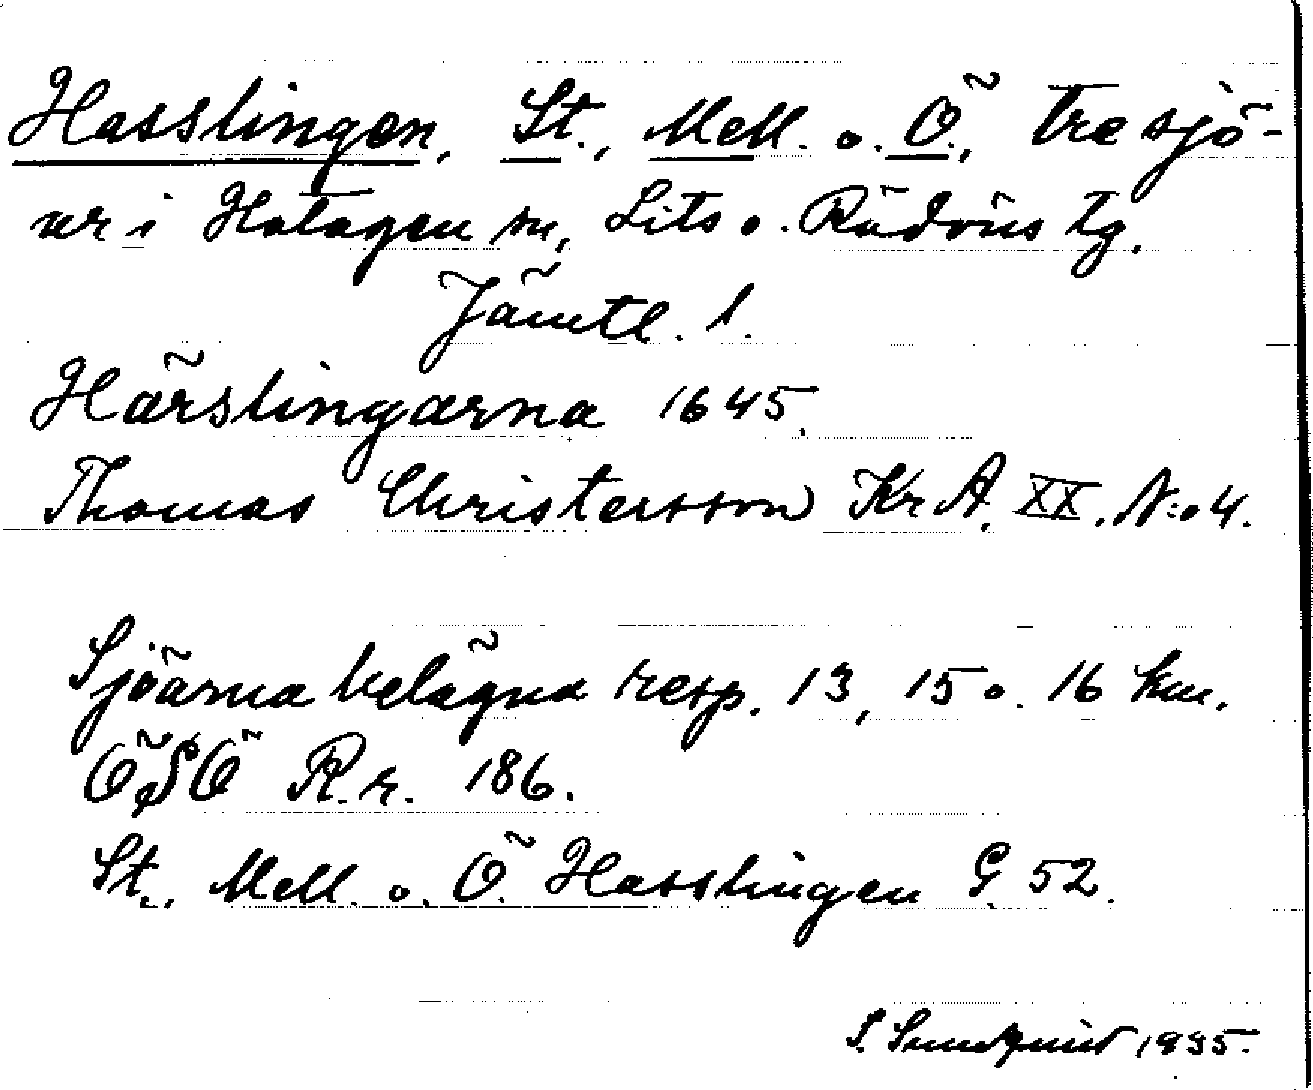 Hasslingen, St., Mell. o. Ö., tre sjö-
ar i Hotagen sn, Lits o. Rödöns tg.
Jämtl. l.
Härslingarna 1645.
Thomas Christersson Kr A. XX. N:o 4.
Sjöarna belägna resp. 13, 15 o. 16 km.
ÖSÖ R.r. 186.
St., Mell. o. Ö. Hasslingen G. 52.
S. Sundquist 1935.